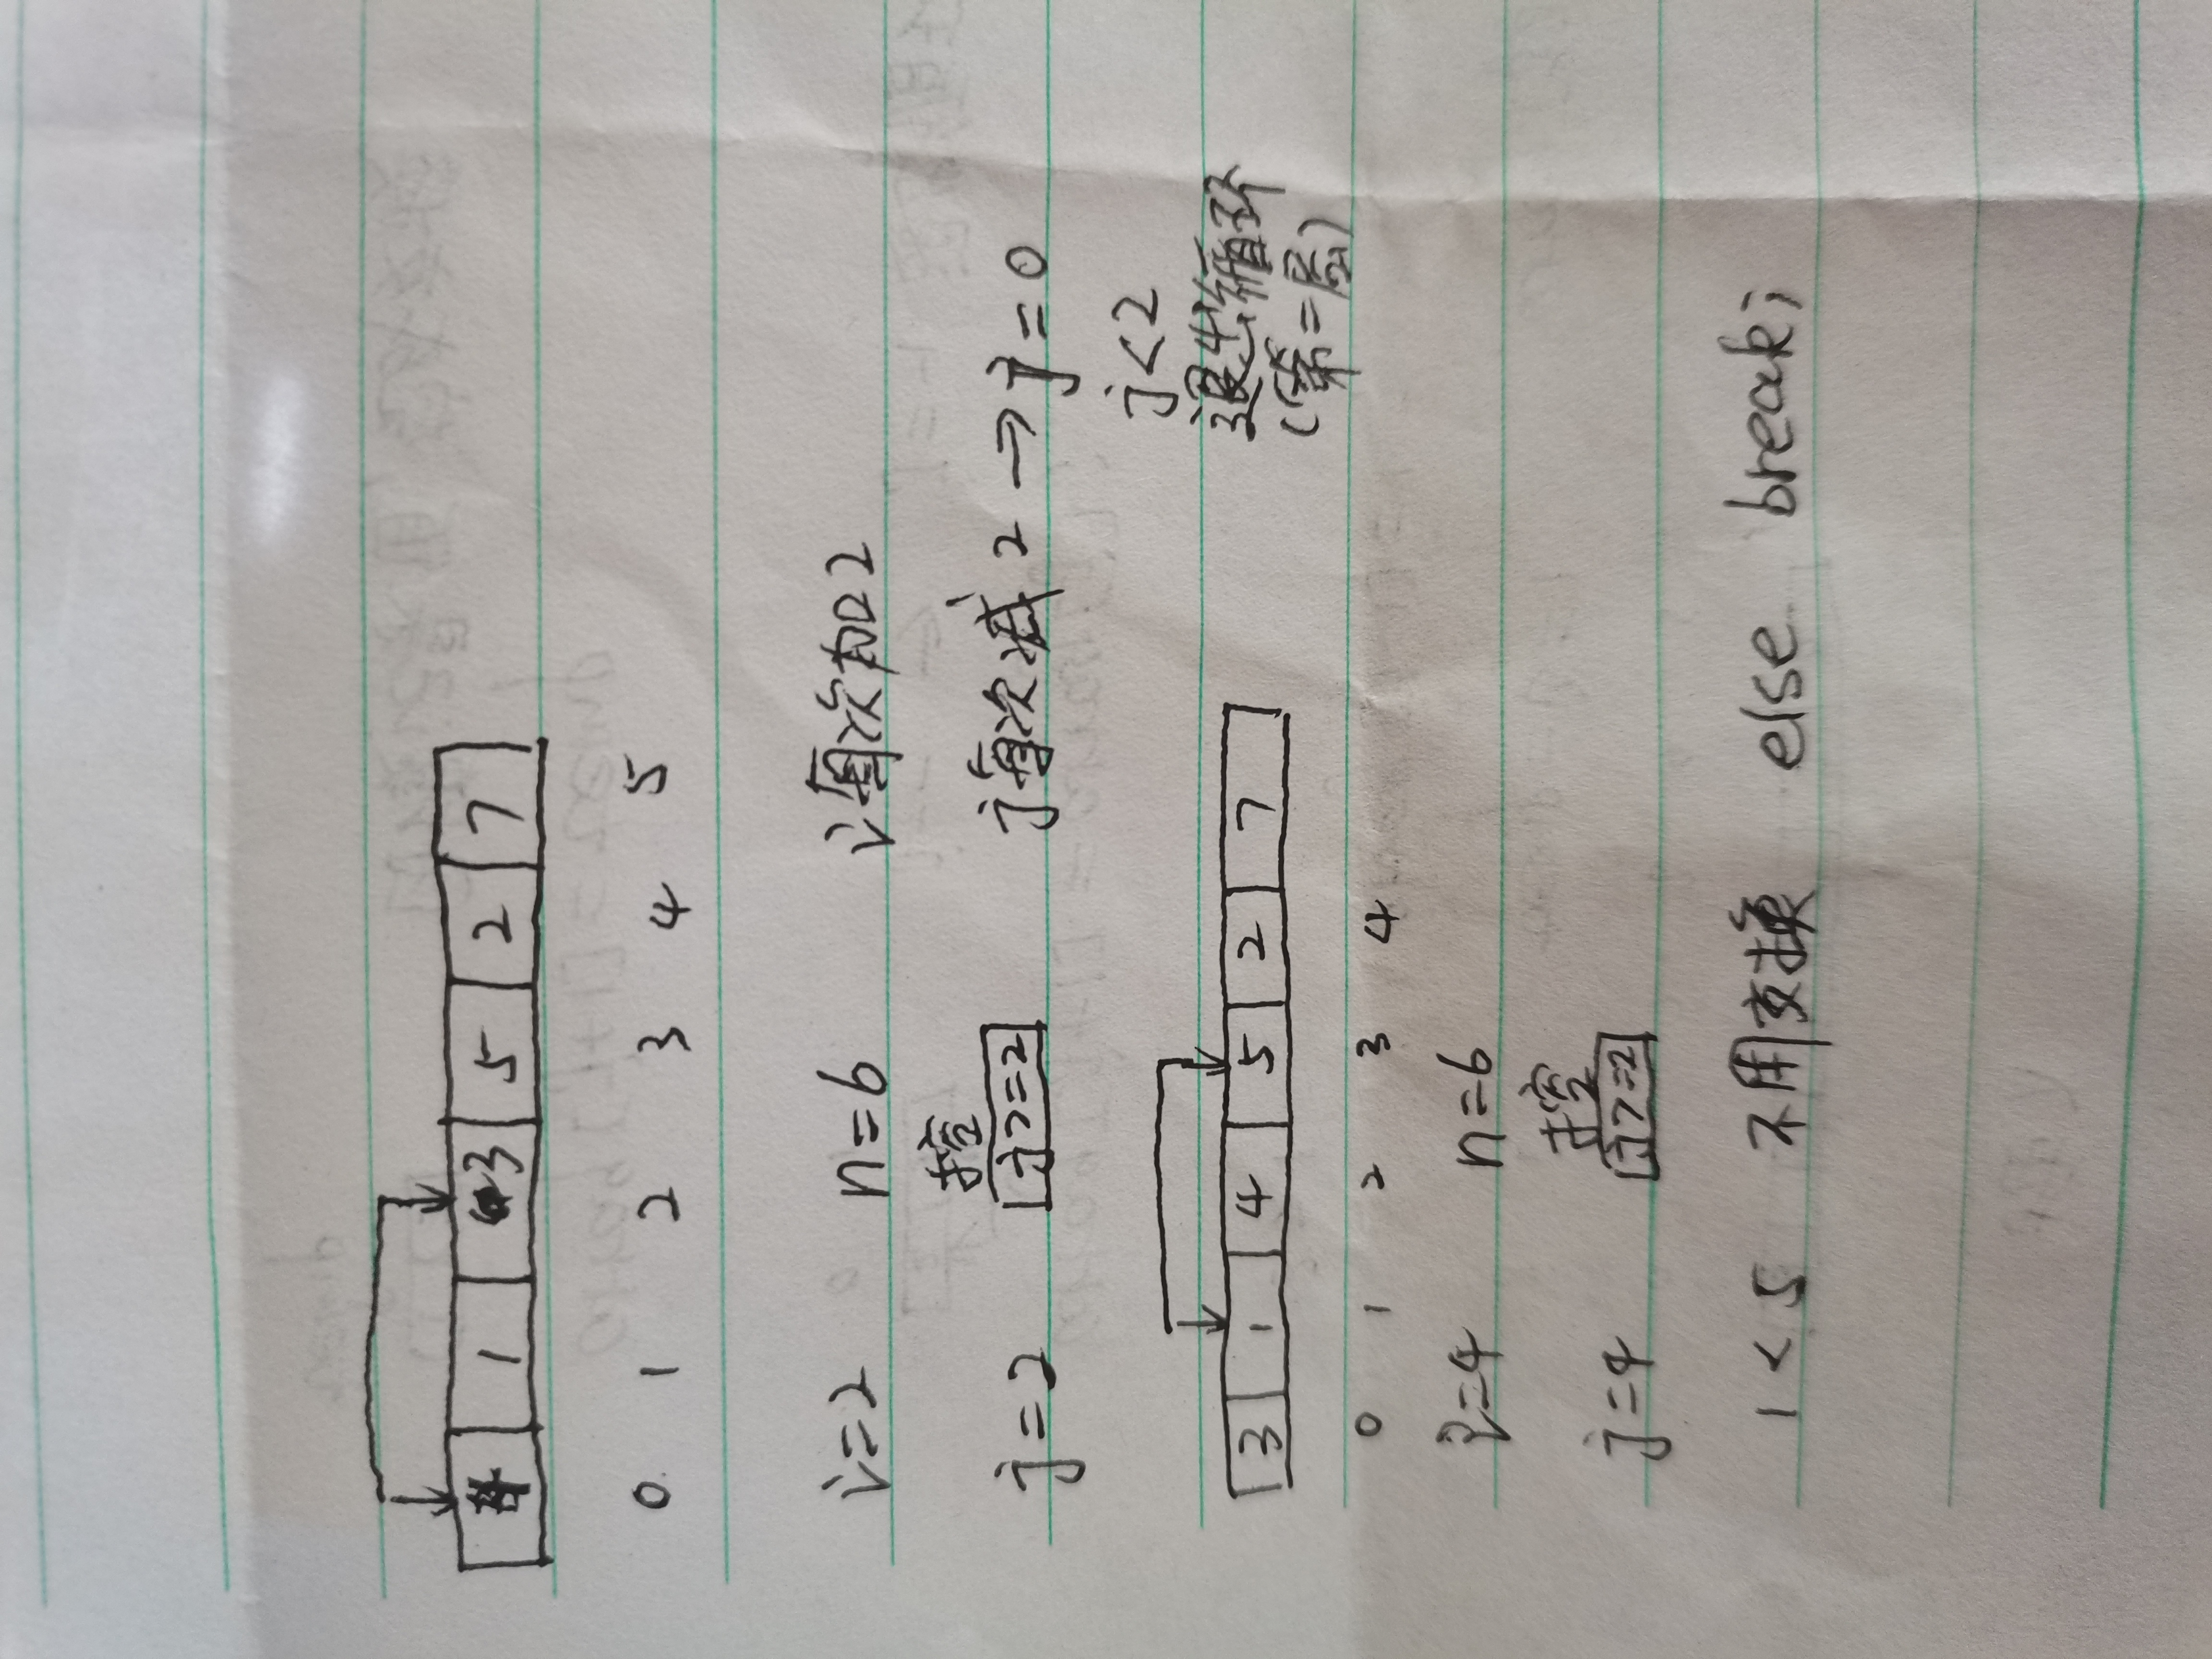 4 1 3 5 2 7
0 1 2 3 4 5
i=2 n=6 i每次加2
控
j=2 j>=2 j每次减2→j=0
j<2
退出循环
(第二层)
3 1 4 5 2 7
0 1 2 3 4
i=4 n=6
控
j=4 j>=2
1<5 不用交换 else break;